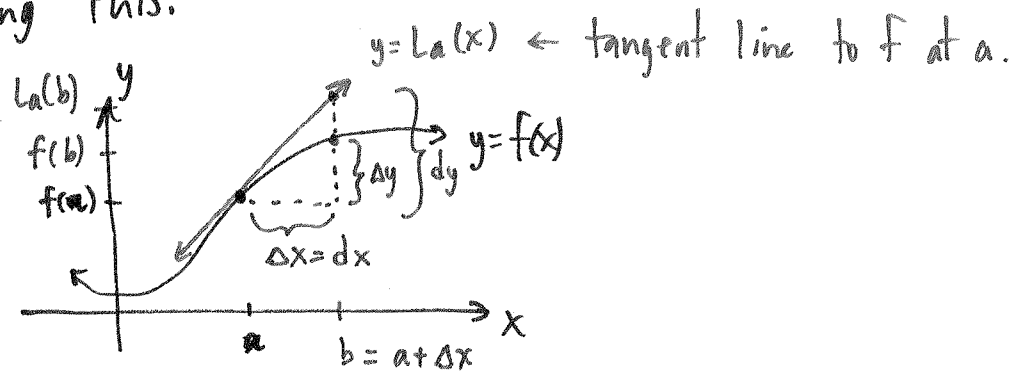 ng this.
y = La(x) ← tangent line to f at a.
La(b) y
f(b)
f(a)
y = f(x)
Δy dy
Δx = dx
x
a
b = a + Δx